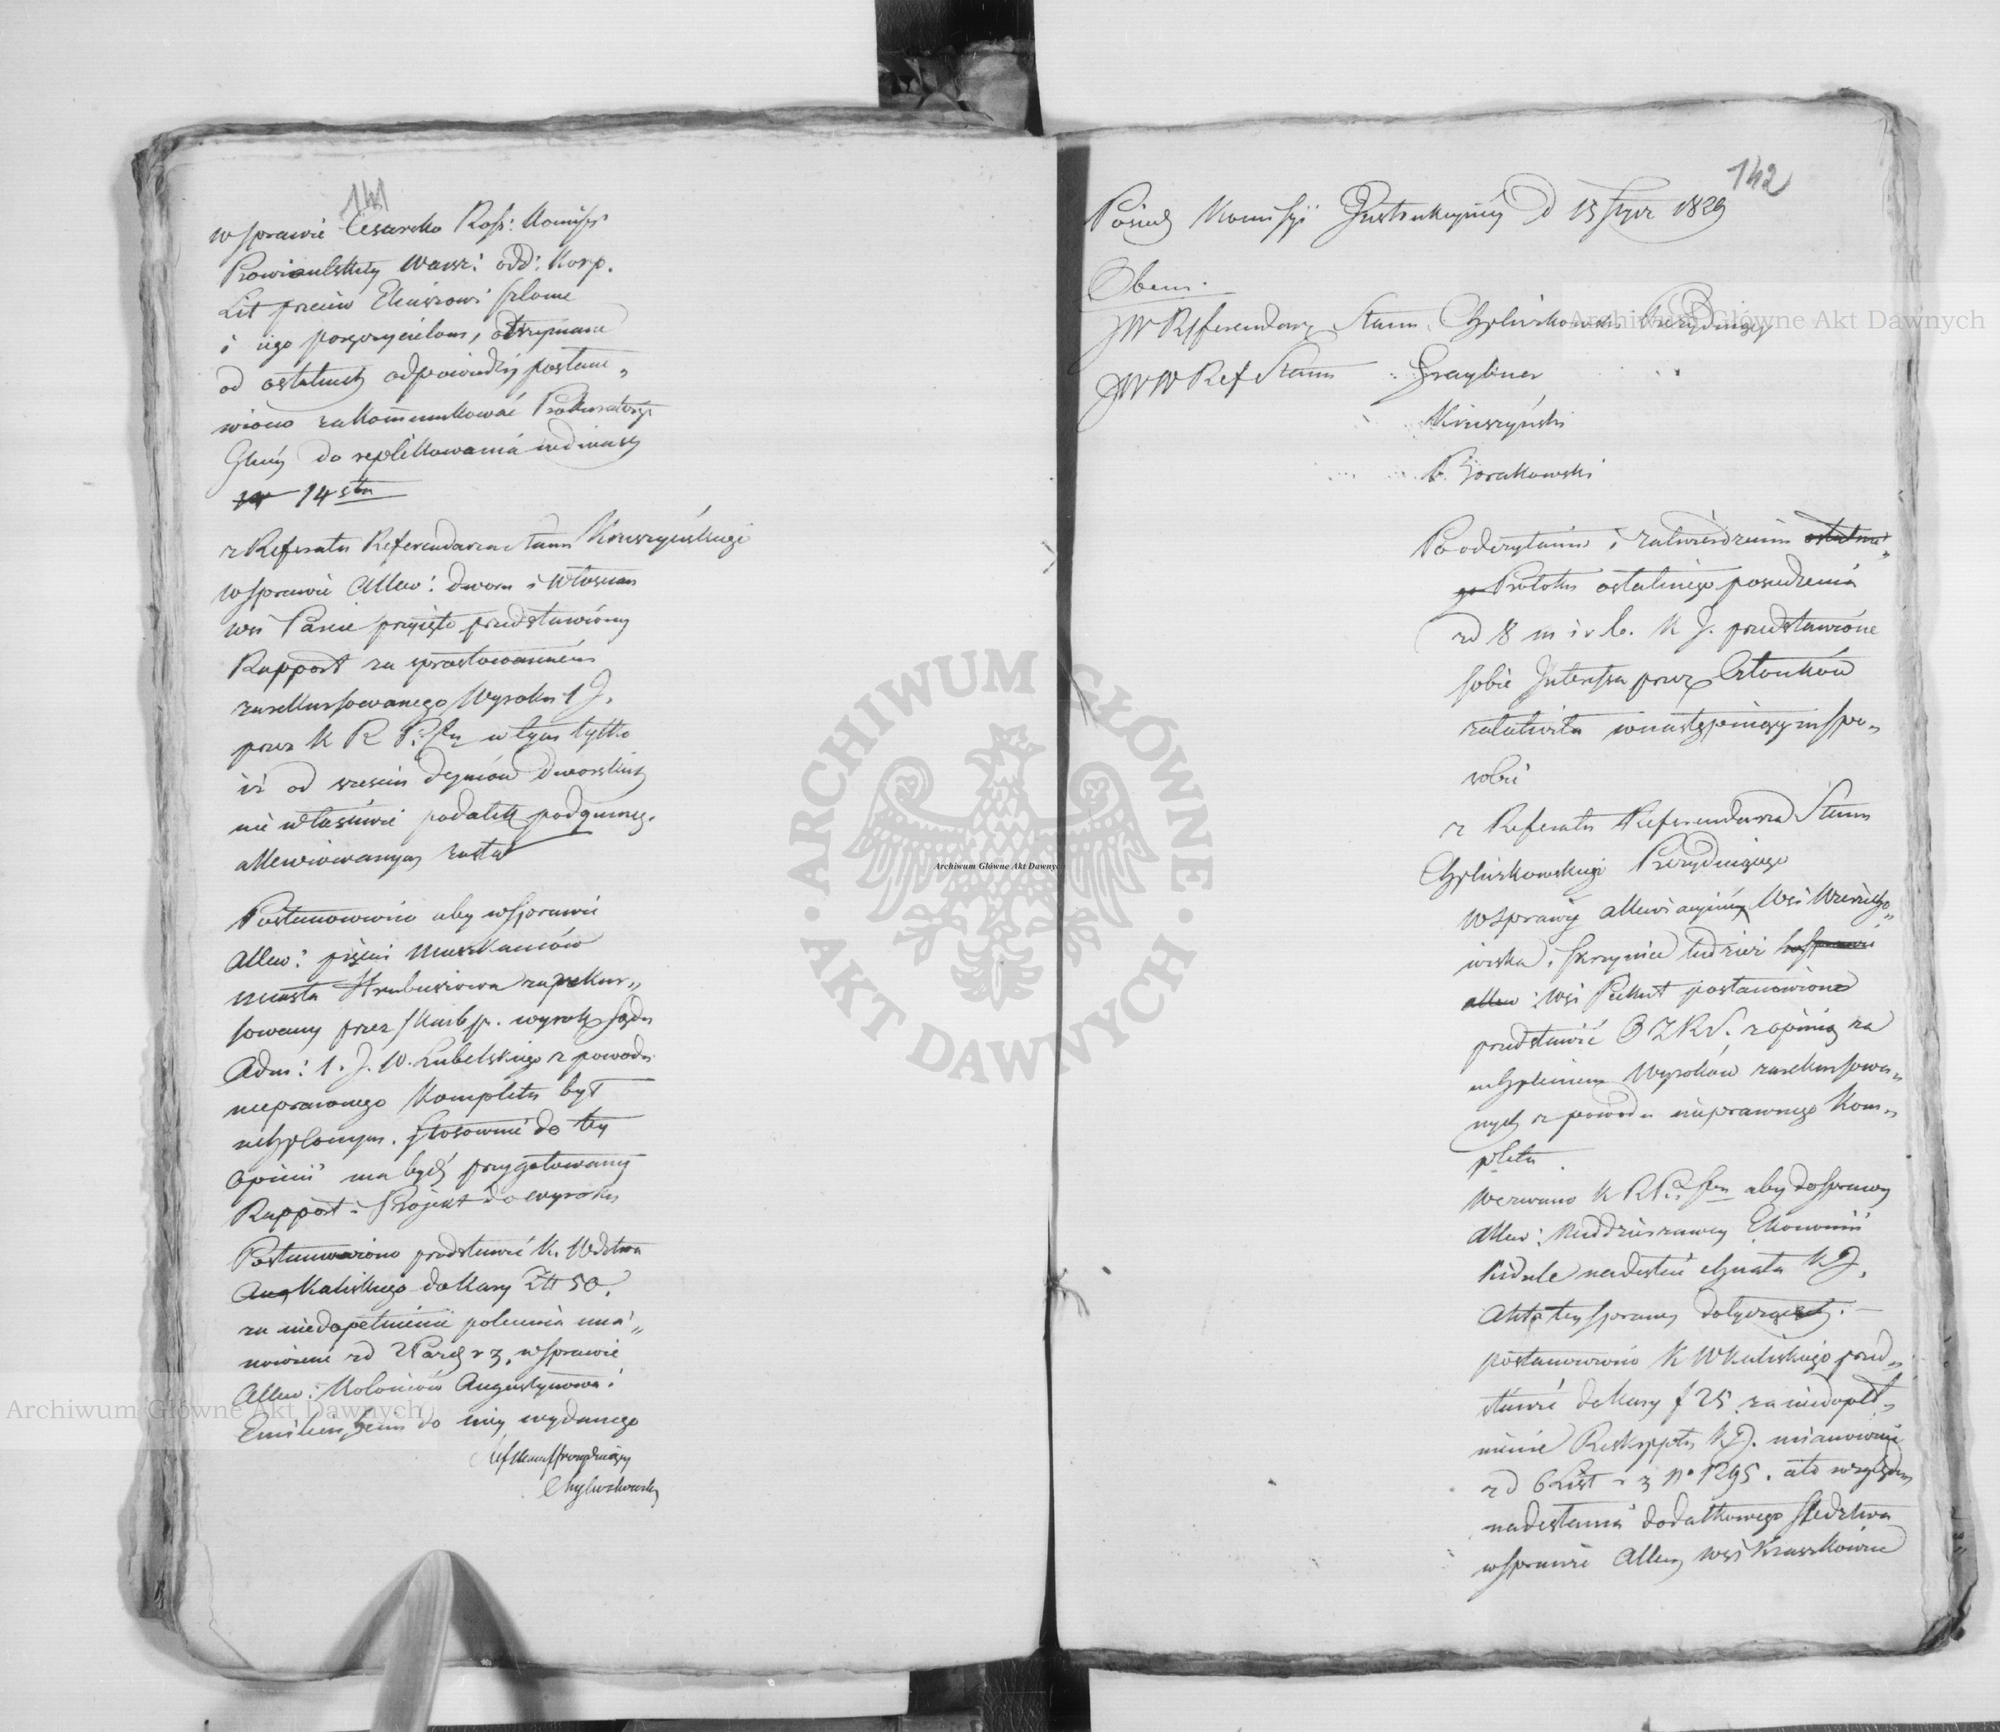 141
w sprawie Cesarsko Ross: Komissyi
Prowiantskiey Warsz: odd: Korp.
Lit przeciw Szlome
i iego poręczycielom, otrzymane
od ostatnich odpowiedzi postano„
wiono zakommunikować Prokuratoryi
Głney do replikowania
14 stu
z Referatu Referendarza Stanu Kruszyńskiego
w sprawie Allew: dworu i Włoscian
wsi przyięto przedstawiony
Rapport za sprostowaniem
zarekursowanego Wyroku 1 J.
przez K R P. i Sk w tym tylko
iż od sześciu dymów dworskich
nie właściwie podatek podymneg.
allewiowanym został
Postanowiono aby w sprawie
Allew: pięciu Mieszkańców
miasta Hrubieszowa zarekur„
sowany przez Skarb p. wyrok Sądu
Adm: 1. J. W. Lubelskiego z powodu
nieprawnego Kompletu był
uchylonym. Stosownie do tey
opinii ma bydź przygotowany
Rapport i Projekt do wyroku
Postanowiono przedstawić K. Wdztwa
Kaliskiego do Kary Zł 50.
za niedopełnienie polecenia mia„
nowicie zd Paźd r z, w sprawie
Allew: Kolonistów Augustynowa i
do niey wydanego
Ref Stanu Prezyduiący
Chyliczkowski
142
Posied Komissyi Instrukcyiney d 15 Stycz 1829
Obecni.
JW Referendarz Stanu Chyliczkowski Prezyduiący
JWW Ref Stanu Graybner
Kruszyński
B. Gorakowski
Po odczytaniu i zatwierdzeniu ostatnie„
go Protokułu ostatniego posiedzenia
zd 8 m i r b. K J. przedstawione
sobie Interessa przez Członków
załatwiła w następuiący spo„
sobie
z Referatu Referendarza Stanu
Chyliczkowskiego Prezyduiącego
w sprawie allewiacyiney Wsi
wiska, Skrzynice tudzież w sprawie
allew: wsi postanowiono
przedstawić z opinią za
uchyleniem Wyroków zarekursowa„
nych z powodu nieprawnego Kom„
pletu.
Wezwano K R P. i Sku aby do sprawy
allew: Ekonomii
nadesłać chciała K J.
Akta tey sprawy dotyczące. —
postanowiono K W Kaliskiego przed„
stawić do Kary f 25 za niedopeł„
nienie Reskryptu K J. mianowicie
zd 6 List r z No 1295. ato względem
nadesłania dodatkowego śledztwa
w sprawie Allew wsi Kraszkowice
Archiwum Główne Akt Dawnych
Archiwum Główne Akt Dawnych
Archiwum Główne Akt Dawnych
ARCHIWUM GŁÓWNE · AKT DAWNYCH ·